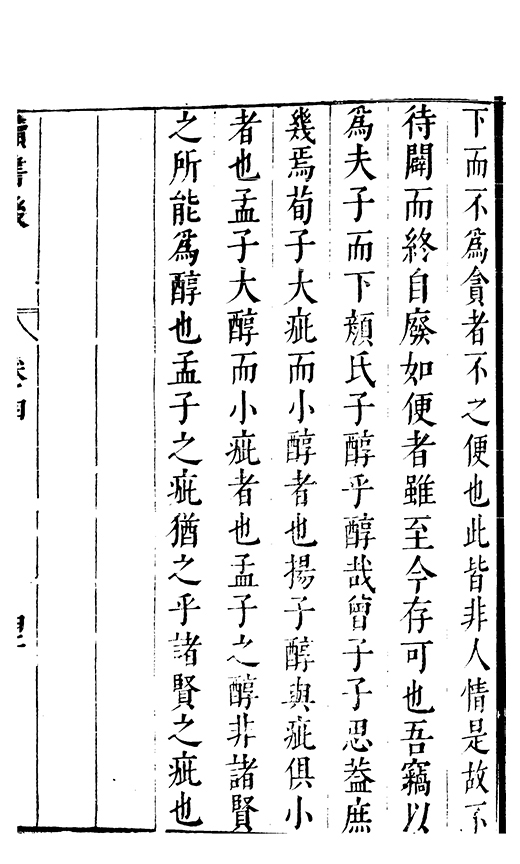 下而不為貪者不之便也此皆非人情是故不
待闢而終自廢如便者雖至今存可也吾竊以
為夫子而下顏氏子醇乎醇哉曾子子思蓋庶
幾焉荀子大疵而小醇者也揚子醇與疵俱小
者也孟子大醇而小疵者也孟子之醇非諸賢
之所能為醇也孟子之疵猶之乎諸賢之疵也
讀書後 卷四